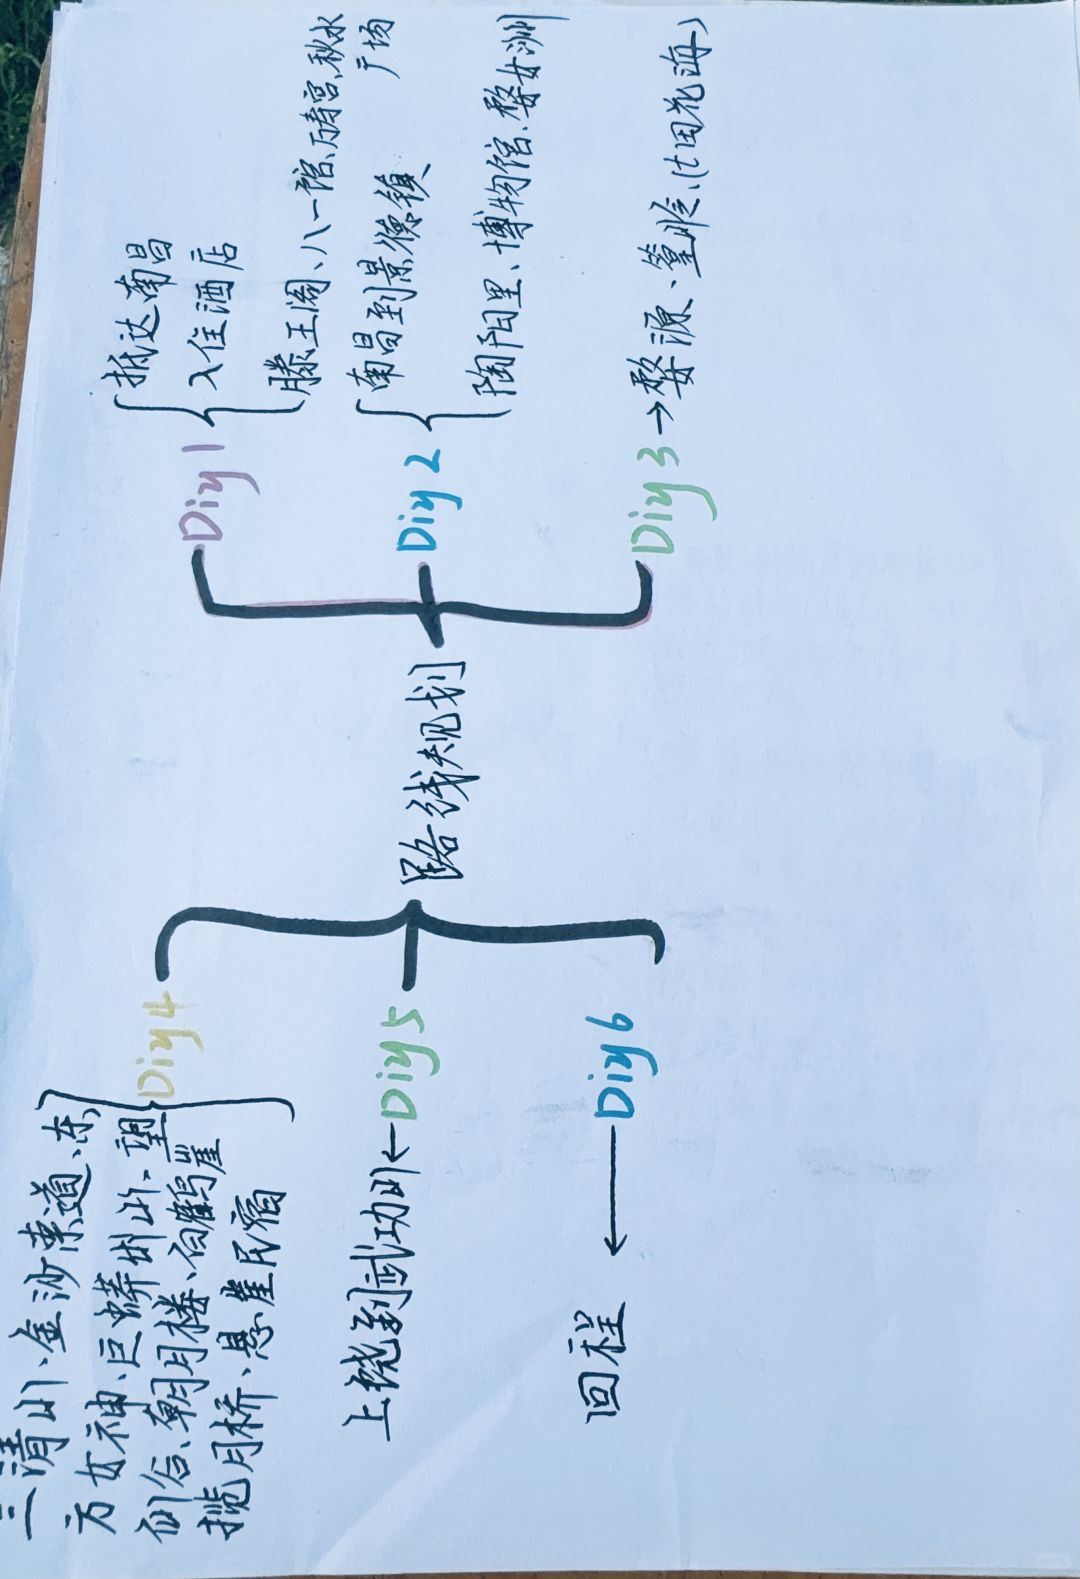 路线规划
Diy 1
抵达南昌
入住酒店
滕王阁、八一馆、万寿宫、秋水
广场
Diy 2
南昌到景德镇
陶阳里、博物馆、婺女洲
Diy 3→婺源、篁岭、(t田花海)
Diy4
三清山、金沙索道、东
方女神、巨蟒出山、望
仙谷、朝月楼、白鹤崖
揽月桥、悬崖民宿
Diy5
上饶到武功山
Diy6
回程